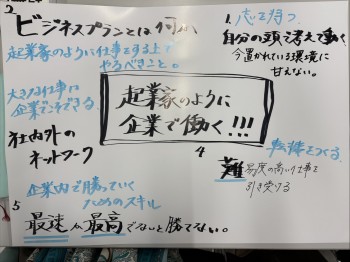 2
ビジネスプランとは何か
起業家のように仕事をする上で
やるべきこと。
大きな仕事に
企業でこそできる
社内外の
ネットワーク
企業内で勝っていく
ためのスキル
5
最速か最高でないと勝てない。
起業家のように
企業で働く!!!
1. 志を持つ
自分の頭で考えて働く
今置かれている環境に
甘えない。
4
転機をつくる
難易度の高い仕事を
引き受ける